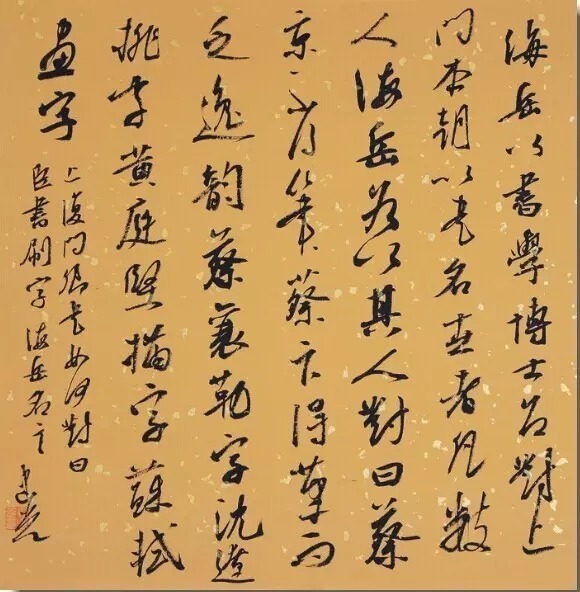 海岳以書學博士召對上
問本朝以書名世者凡數
人海岳各以其人對曰蔡
京不得筆蔡卞得筆而
乏逸韵蔡襄勒字沈遼
排字黃庭堅描字蘇軾
畫字
上復問卿書如何對曰
臣書刷字海岳名言